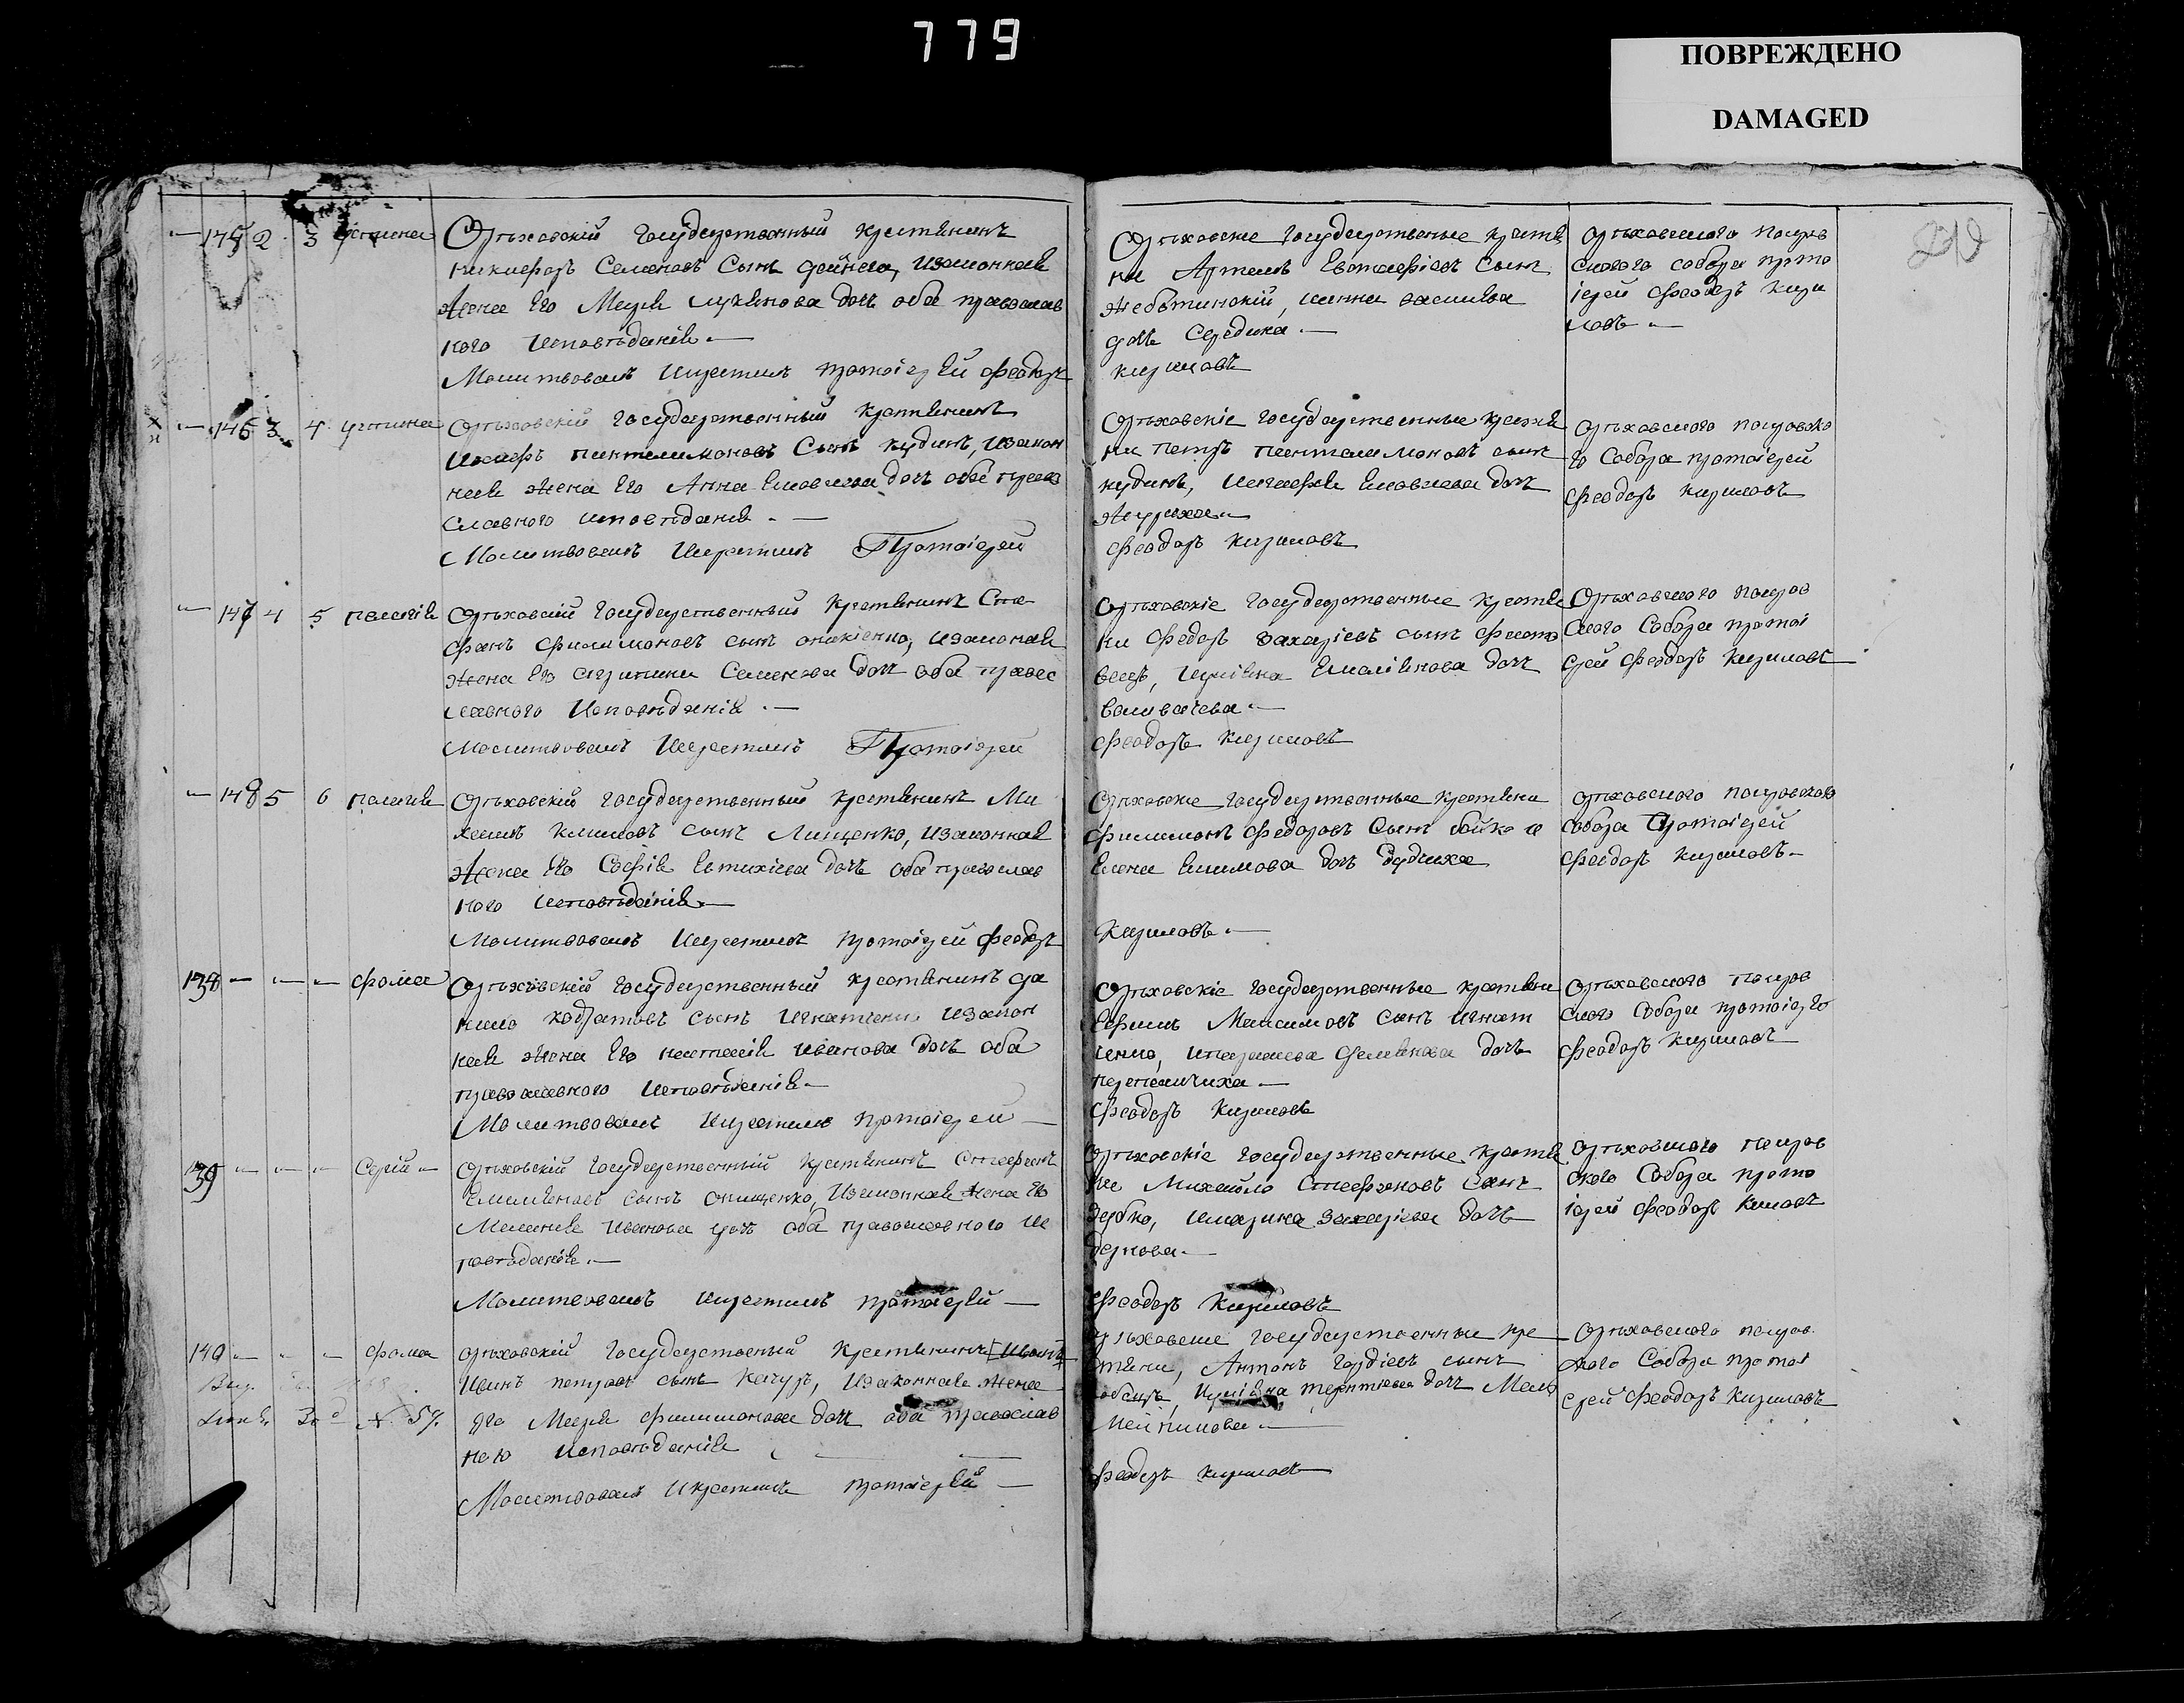 779
ПОВРЕЖДЕНО
DAMAGED
2 3 Устина Орѣховскій Государственный крестьянинъ
Никифоръ Семеновъ сынъ Дейнега, Изаконная
жена Его Марія Лукьянова дочь оба православ
ного Исповѣданія. —
Молитвовалъ Икрестилъ протоіерей Феодоръ
Орѣховские Государственые крестья
ни Артемъ Евстафіевъ Сынъ
Жеботинскій, ианна василева
дочь Середина. —
кириловъ
Орѣховского покров
ского собора прото
іерей Феодоръ Кири
ловъ —
— 146 3 4 Устина Орѣховскій Государственный крестьянинъ
пантелимоновъ Сынъ Кудинъ, Изакон
ная жена Его Анна Яковлева дочь оба право
славного исповѣданія. —
Молитвовалъ Икрестилъ Протоіерей
Орѣховскіе Государственные крестья
ни петръ пантелимоновъ сынъ
кудинъ, Яковлева дочь
Феодоръ Кириловъ
Орѣховского покровско
го Собора протоіерей
Феодоръ Кириловъ
— 147 4 5 пелагія Орѣховскій Государственный Крестьянинъ Сте
фанъ Филимоновъ сынъ онікіенко, изаконая
жена Его Семенова дочь оба правос
лавного Исповѣданія. —
Молитвовалъ Икрестилъ Протоіерей
Орѣховскіе Государственные Крестья
ни Федоръ Захаріевъ сынъ
Иуліяна Емеліянова дочь
Феодоръ Кириловъ
Орѣховского покров
ского Собора протоі
ерей Феодоръ Кириловъ
— 148 5 6 пелагія Орѣховскій Государственный крестьянинъ Ми
хаилъ Климовъ сынъ Лищенко, Изаконная
жена Его Софія Евтихіева дочь оба православ
ного Исповѣданія. —
Молитвовалъ Икрестилъ протоіерей Феодоръ
Орѣховские Государственные крестьяни
Филимонъ Федоровъ Сынъ бойко и
Елена Екимова дочь Дудниха
Кириловъ. —
Орѣховского покровского
Собора Протоіерей
Феодоръ Кириловъ. —
138 — — — Фома Орѣховскій Государственный крестьянинъ Да
нило Кодратовъ сынъ Игнатченко Изакон
ная жена Его настасія Иванова дочь оба
православного Исповѣданія —
Молитвовалъ Икрестилъ протоіерей —
Орѣховскіе Государственные крестьяни
Ефимъ Максимовъ Сынъ Игнат
ченко, дочь
перепеличиха —
Феодоръ Кириловъ
Орѣховского Покров
ского Собора протоіерго
Феодоръ Кириловъ
139 — — — Сергій — Орѣховскій Государственный Крестьянинъ Стефанъ
Емиліяновъ сынъ Онищенко, Изаконная жена Его
Меланія Иванова дочь оба православного Ис
повѣданія. —
Молитвовалъ Икрестилъ протоіерей —
Орѣховскіе Государственные крестья
не Михайло Стефановъ Сынъ
Захаріева дочь
Феодоръ Кириловъ
Орѣховского покров
ского Собора прото
іерей Феодоръ
140 — — — Фома Орѣховскій Государственый Крестьянинъ [Иванъ]
Иванъ петровъ сынъ Качуръ, Изаконная жена
его Марія Филимонова дочь оба православ
ного исповѣданія
Молитвовалъ Икрестилъ протоіерей —
№ 57.
Государственные кре
стьяни, Антонъ Гордіевъ сынъ
Иуліяна терентіева дочь
Феодоръ Кириловъ
Орѣховского покров
ского Собора протоі
ерей Феодоръ Кириловъ